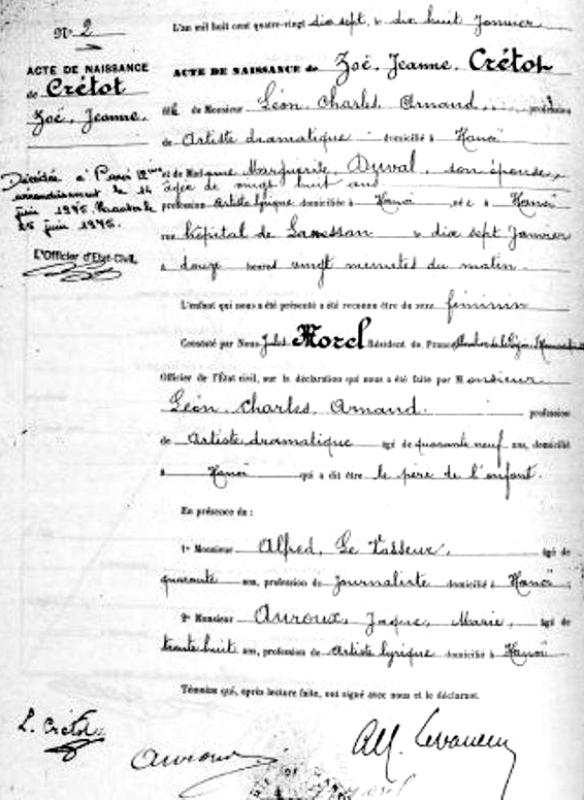 N° 2
ACTE DE NAISSANCE
de Crétot
Zoé, Jeanne.
Décédée à Paris 12ème
arrondissement le 14
juin 1975.
25 juin 1975.
L'Officier d'Etat-Civil,
L'an mil huit cent quatre-vingt dix sept, le dix huit Janvier
ACTE DE NAISSANCE de Zoé, Jeanne, Crétot
de Monsieur Léon Charles Arnaud, profession
de Artiste dramatique domicilié à Hanoï
et de Madame Marguerite, Duval, son épouse,
âgée de vingt huit ans
profession Artiste lyrique domiciliée à Hanoï née à Hanoï
rue hôpital de Lanessan le dix sept Janvier
à douze heures vingt minutes du matin.
L'enfant qui nous a été présenté a été reconnu être du sexe féminin
Constaté par Nous Jules Morel Résident de France
Officier de l'État civil, sur la déclaration qui nous a été faite par Monsieur
Léon, Charles, Arnaud. profession
de Artiste dramatique âgé de quarante neuf ans, domicilié
à Hanoï qui a dit être le père de l'enfant.
En présence de :
1° Monsieur Alfred, Le Vasseur, âgé de
quarante ans, profession de journaliste domicilié à Hanoï
2° Monsieur Auroux, Jaque, Marie, âgé de
trente huit ans, profession de Artiste lyrique domicilié à Hanoï
Témoins qui, après lecture faite, ont signé avec nous et le déclarant.
L. Crétot
Auroux
Alf. Levasseur